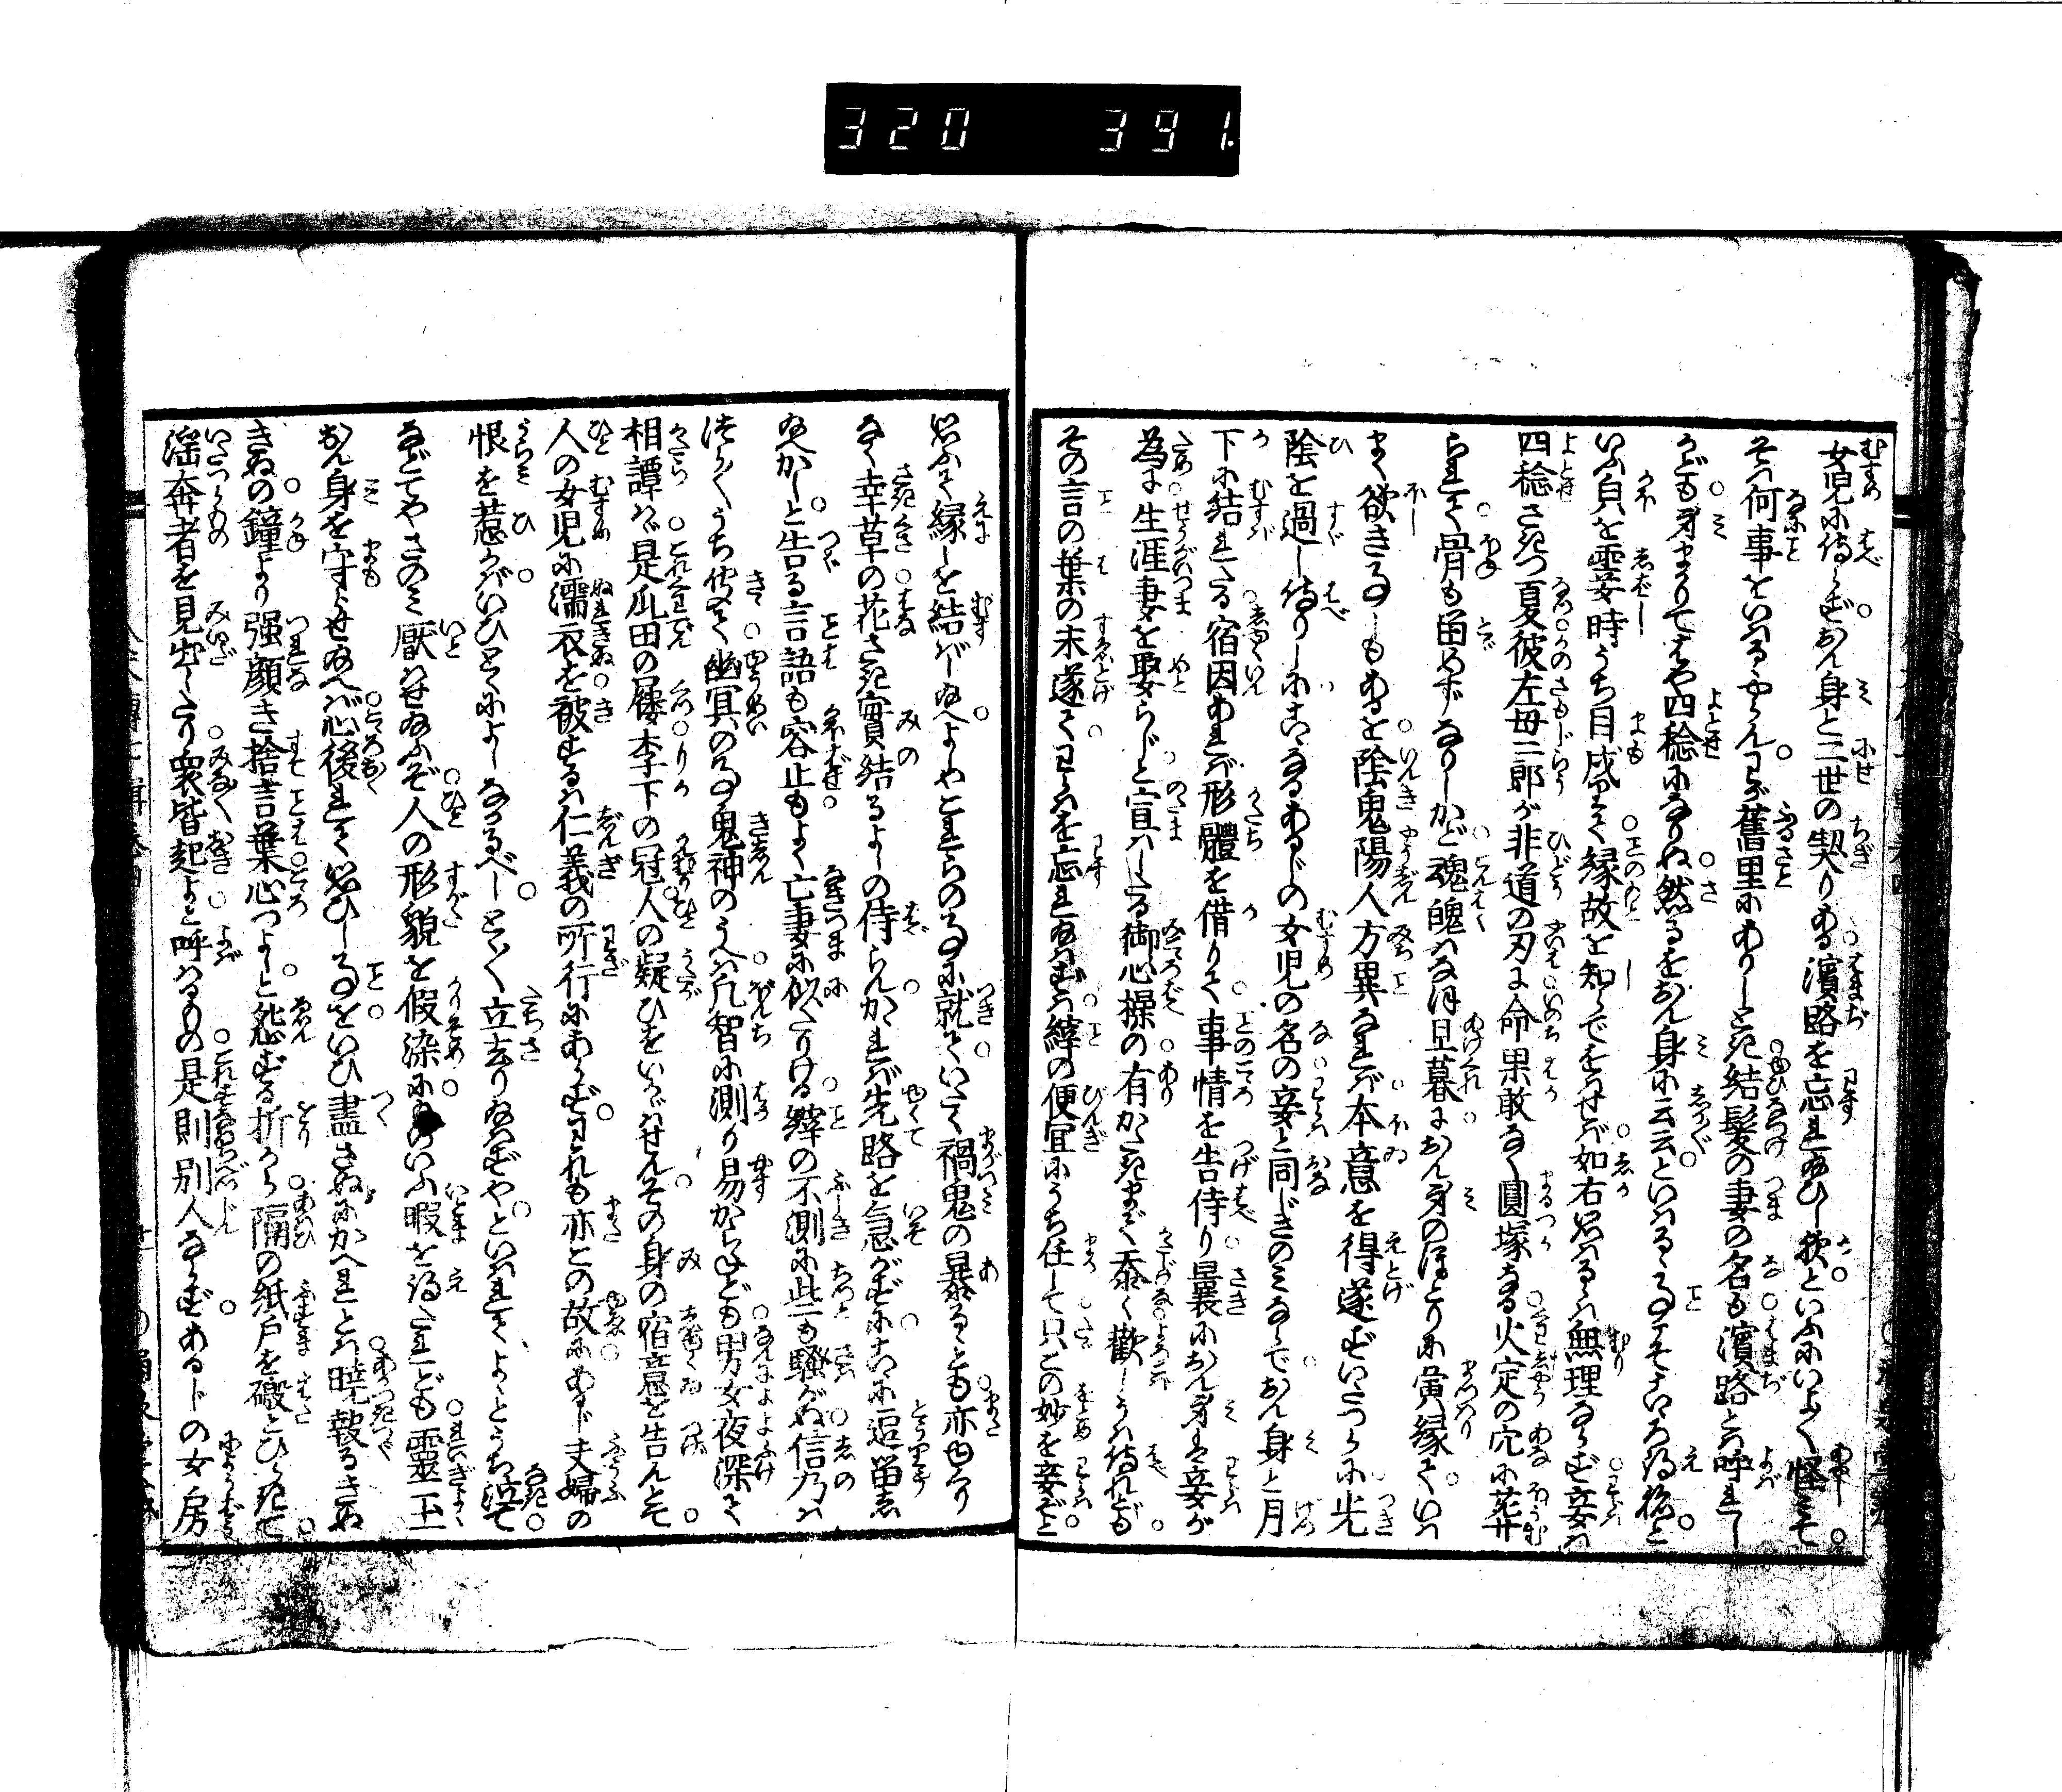 320 391.
女児に侍らず。おん身と二世の契りある。濱路を忘れ給ひし欤。といふにいよ〳〵怪みて。
そは何事をいはるゝやらん。わが舊里にありしとき。結髪の妻の名も。濱路とは呼れし
かども。身まかりてはや四稔になりぬ。然るをおん身に云云。といはるゝ事こそこゝろ得ね。と
いふ㒵を霎時うち目戍りて。縁故を知らでをはせば。如右思はるゝは無理ならず。妾は
四稔さきつ夏。彼左母二郎が非道の刃に。命果敢なく圓塚なる。火定の穴に葬
られて。骨も畄めずなりしかど。魂魄はなほ旦暮に。おん身のほとりに寅縁て。いは
まく欲き事しもあるを。陰鬼陽人方異なれば。本意を得遂ずいたつらに。光
陰を過し侍りしに。こゝなるあるじの女児の名の。妾と同じきのみならで。おん身と月
下に結れたる。宿因あれば形體を借りて。事情を告侍り。曩におん身は妾が
為に。生涯妻を娶らじ。と宣はしたる御心操の。有かたきまで忝く。歡しうは侍れども。
その言の葉の末遂て。わらはを忘れ給はずは。縡の便宜にうち任して。只この妙を妾ぞと
思ふて縁しを結ばし給へよや。とてもこれらの事に就て。いたく禍鬼の暴るゝとも。亦由なり
なく幸草の。花さき實結るよしの侍らん。かゝれば先路を急がずに。こゝに逗畄し
給へかし。と告る言語も容止も。よく亡妻に似たりける。縡の不測に些も騒がぬ。信乃は
つく〳〵うち聴て。幽冥の事鬼神のうへは。凡智に測り易からねども。男女夜深て
相譚はゞ。是瓜田の履李下の冠。人の疑ひをいかゞはせん。その身の宿意を告んとて。
人の女児に濡衣を。被するは仁義の所行にあらず。われも亦との故に。あるじ夫婦の
恨を惹かば。いひとくによしなかるべし。とく〳〵立去り給はずや。といはれてよゝとうち泣て。
などてやさのみ厭はせ給ふぞ。人の形貌を假染に。いふ暇を得たれども。靈玉
おん身を守らせ給へば。心後れて思ひし事を。いひ盡さぬにかへれとは。暁報るきぬ
きぬの。鐘より強顔き捨言葉。心つよしと怨ずる折から。隔の紙戸を礑とひらきて。
淫奔者を見出したり。衆皆起よ。と呼はるもの。是則別人ならず。あるじの女房